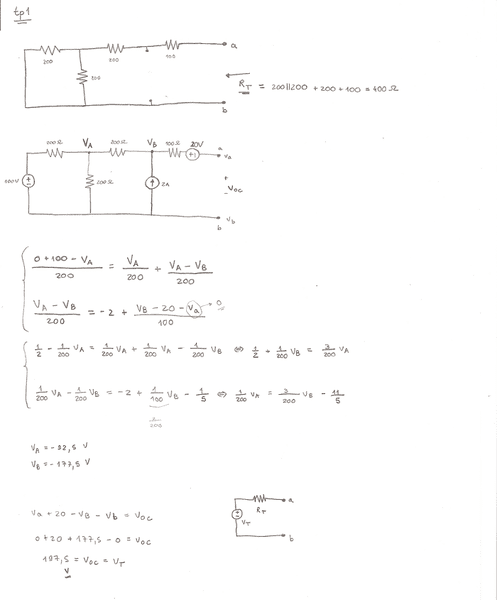 tp1
200 200 100 a
200
R_T = 200||200 + 200 + 100 = 400 Ω
b
200Ω V_A 200Ω V_B 100Ω 20V a
Va
100V 200Ω 2A + - Voc
b Vb
(0 + 100 - V_A)/200 = V_A/200 + (V_A - V_B)/200
(V_A - V_B)/200 = -2 + (V_B - 20 - Va)/100 0
1/2 - 1/200 V_A = 1/200 V_A + 1/200 V_A - 1/200 V_B ⇔ 1/2 + 1/200 V_B = 3/200 V_A
1/200 V_A - 1/200 V_B = -2 + 1/100 V_B - 1/5 ⇔ 1/200 V_A = 3/200 V_B - 11/5
2/200
V_B = -177,5 V
Va + 20 - V_B - Vb = Voc
0 + 20 + 177,5 - 0 = Voc
197,5 = Voc = V_T
V
R_T a
V_T
b